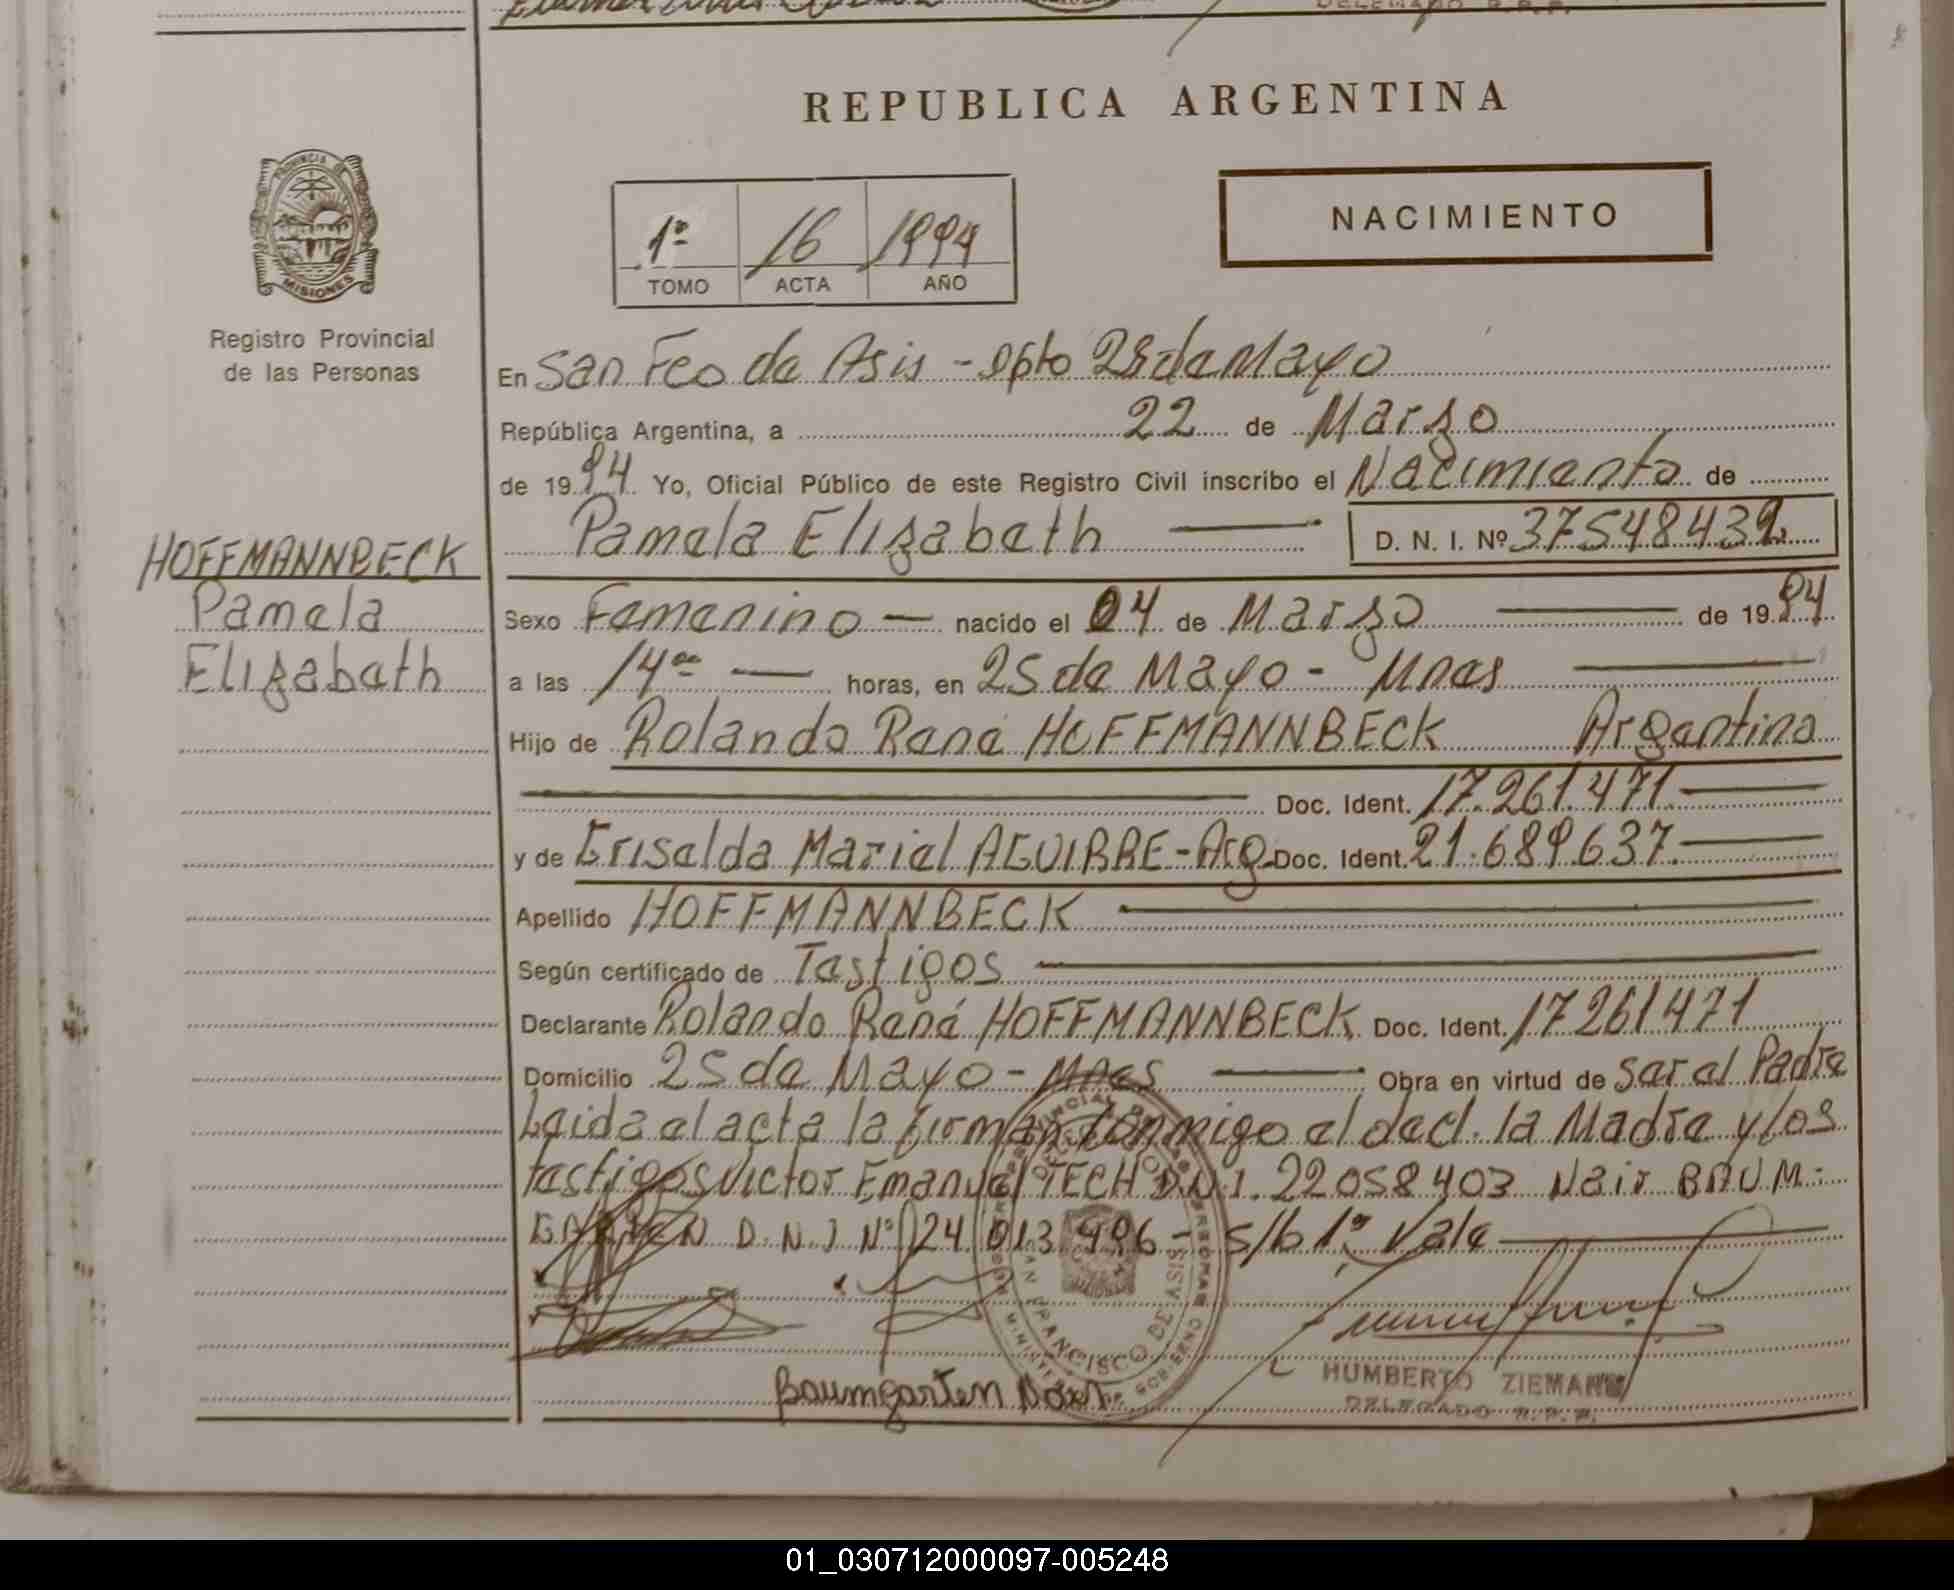 REPUBLICA ARGENTINA
PROVINCIA DE
MISIONES
Registro Provincial
de las Personas
1º 16 1994
TOMO ACTA AÑO
NACIMIENTO
En San Fco de Asis - Dpto 25 de Mayo
República Argentina, a 22 de Marzo
de 1994 Yo, Oficial Público de este Registro Civil inscribo el Nacimiento de
Pamela Elizabeth D. N. I. Nº 37548432
HOFFMANNBECK
Pamela
Elizabeth
Sexo Femenino nacido el 04 de Marzo de 1994
a las 14 horas, en 25 de Mayo - Mnes
Hijo de Rolando René HOFFMANNBECK Argentino
Doc. Ident. 17.261.471
y de Griselda Mariel AGUIRRE - Arg. Doc. Ident. 21.689.637
Apellido HOFFMANNBECK
Según certificado de Testigos
Declarante Rolando René HOFFMANNBECK Doc. Ident. 17261471
Domicilio 25 de Mayo - Mnes Obra en virtud de Ser el Padre
Leida el acta la firman conmigo el decl. la Madre y los
testigos Victor Emanuel TECH D.N.I. 22058403 Nair BAUM:
GARTEN D.N.I Nº 24 013 496 - S/b 1º Vale
SAN FRANCISCO DE ASIS
Baumgarten Nair
HUMBERTO ZIEMANN
DELEGADO R.P.P.
01_030712000097-005248